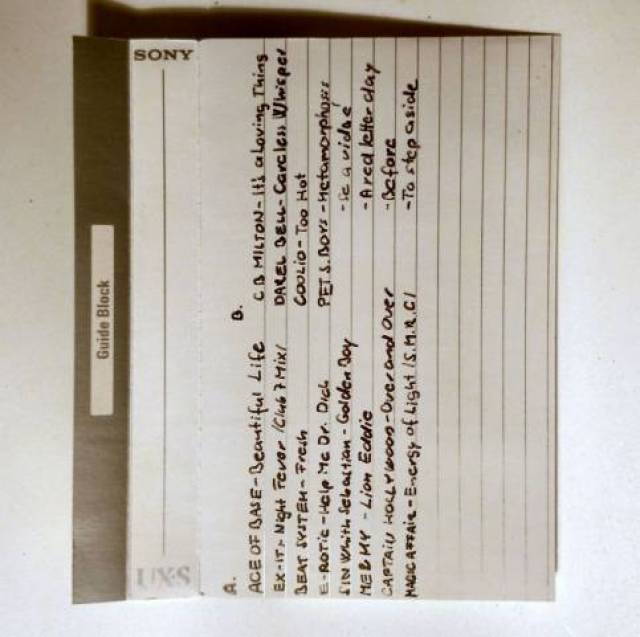 Guide Block
SONY
UX-S
A.
ACE OF BASE - Beautiful Life
EX-IT - Night Fever /Club 7 Mix/
BEAT SYSTEM - Fresh
E-ROTIC - Help Me Dr. Dick
SIN With Sebastian - Golden Boy
ME & MY - Lion Eddie
CAPTAIN HOLLYWOOD - Over and Over
MAGIC AFFAIR - Energy of Light /S.M.R.C/
B.
C.B MILTON - It's a Loving Thing
DAREL BELL - Careless Whisper
COOLIO - Too Hot
PET S. BOYS - Metamorphosis
- Se a vida é
- A red letter day
- Before
- To step aside